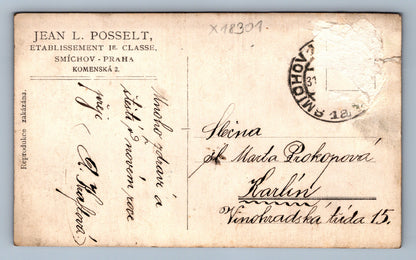 x18301
JEAN L. POSSELT,
ETABLISSEMENT Ie. CLASSE,
SMÍCHOV - PRAHA
KOMENSKÁ 2.
Reprodukce zakázána.
Mnoho zdraví a
štěstí v novém roce
přeje
SMÍCHOV
31
Slečna
sl. Marta Prokopová
Karlín
Vinohradská třída 15.